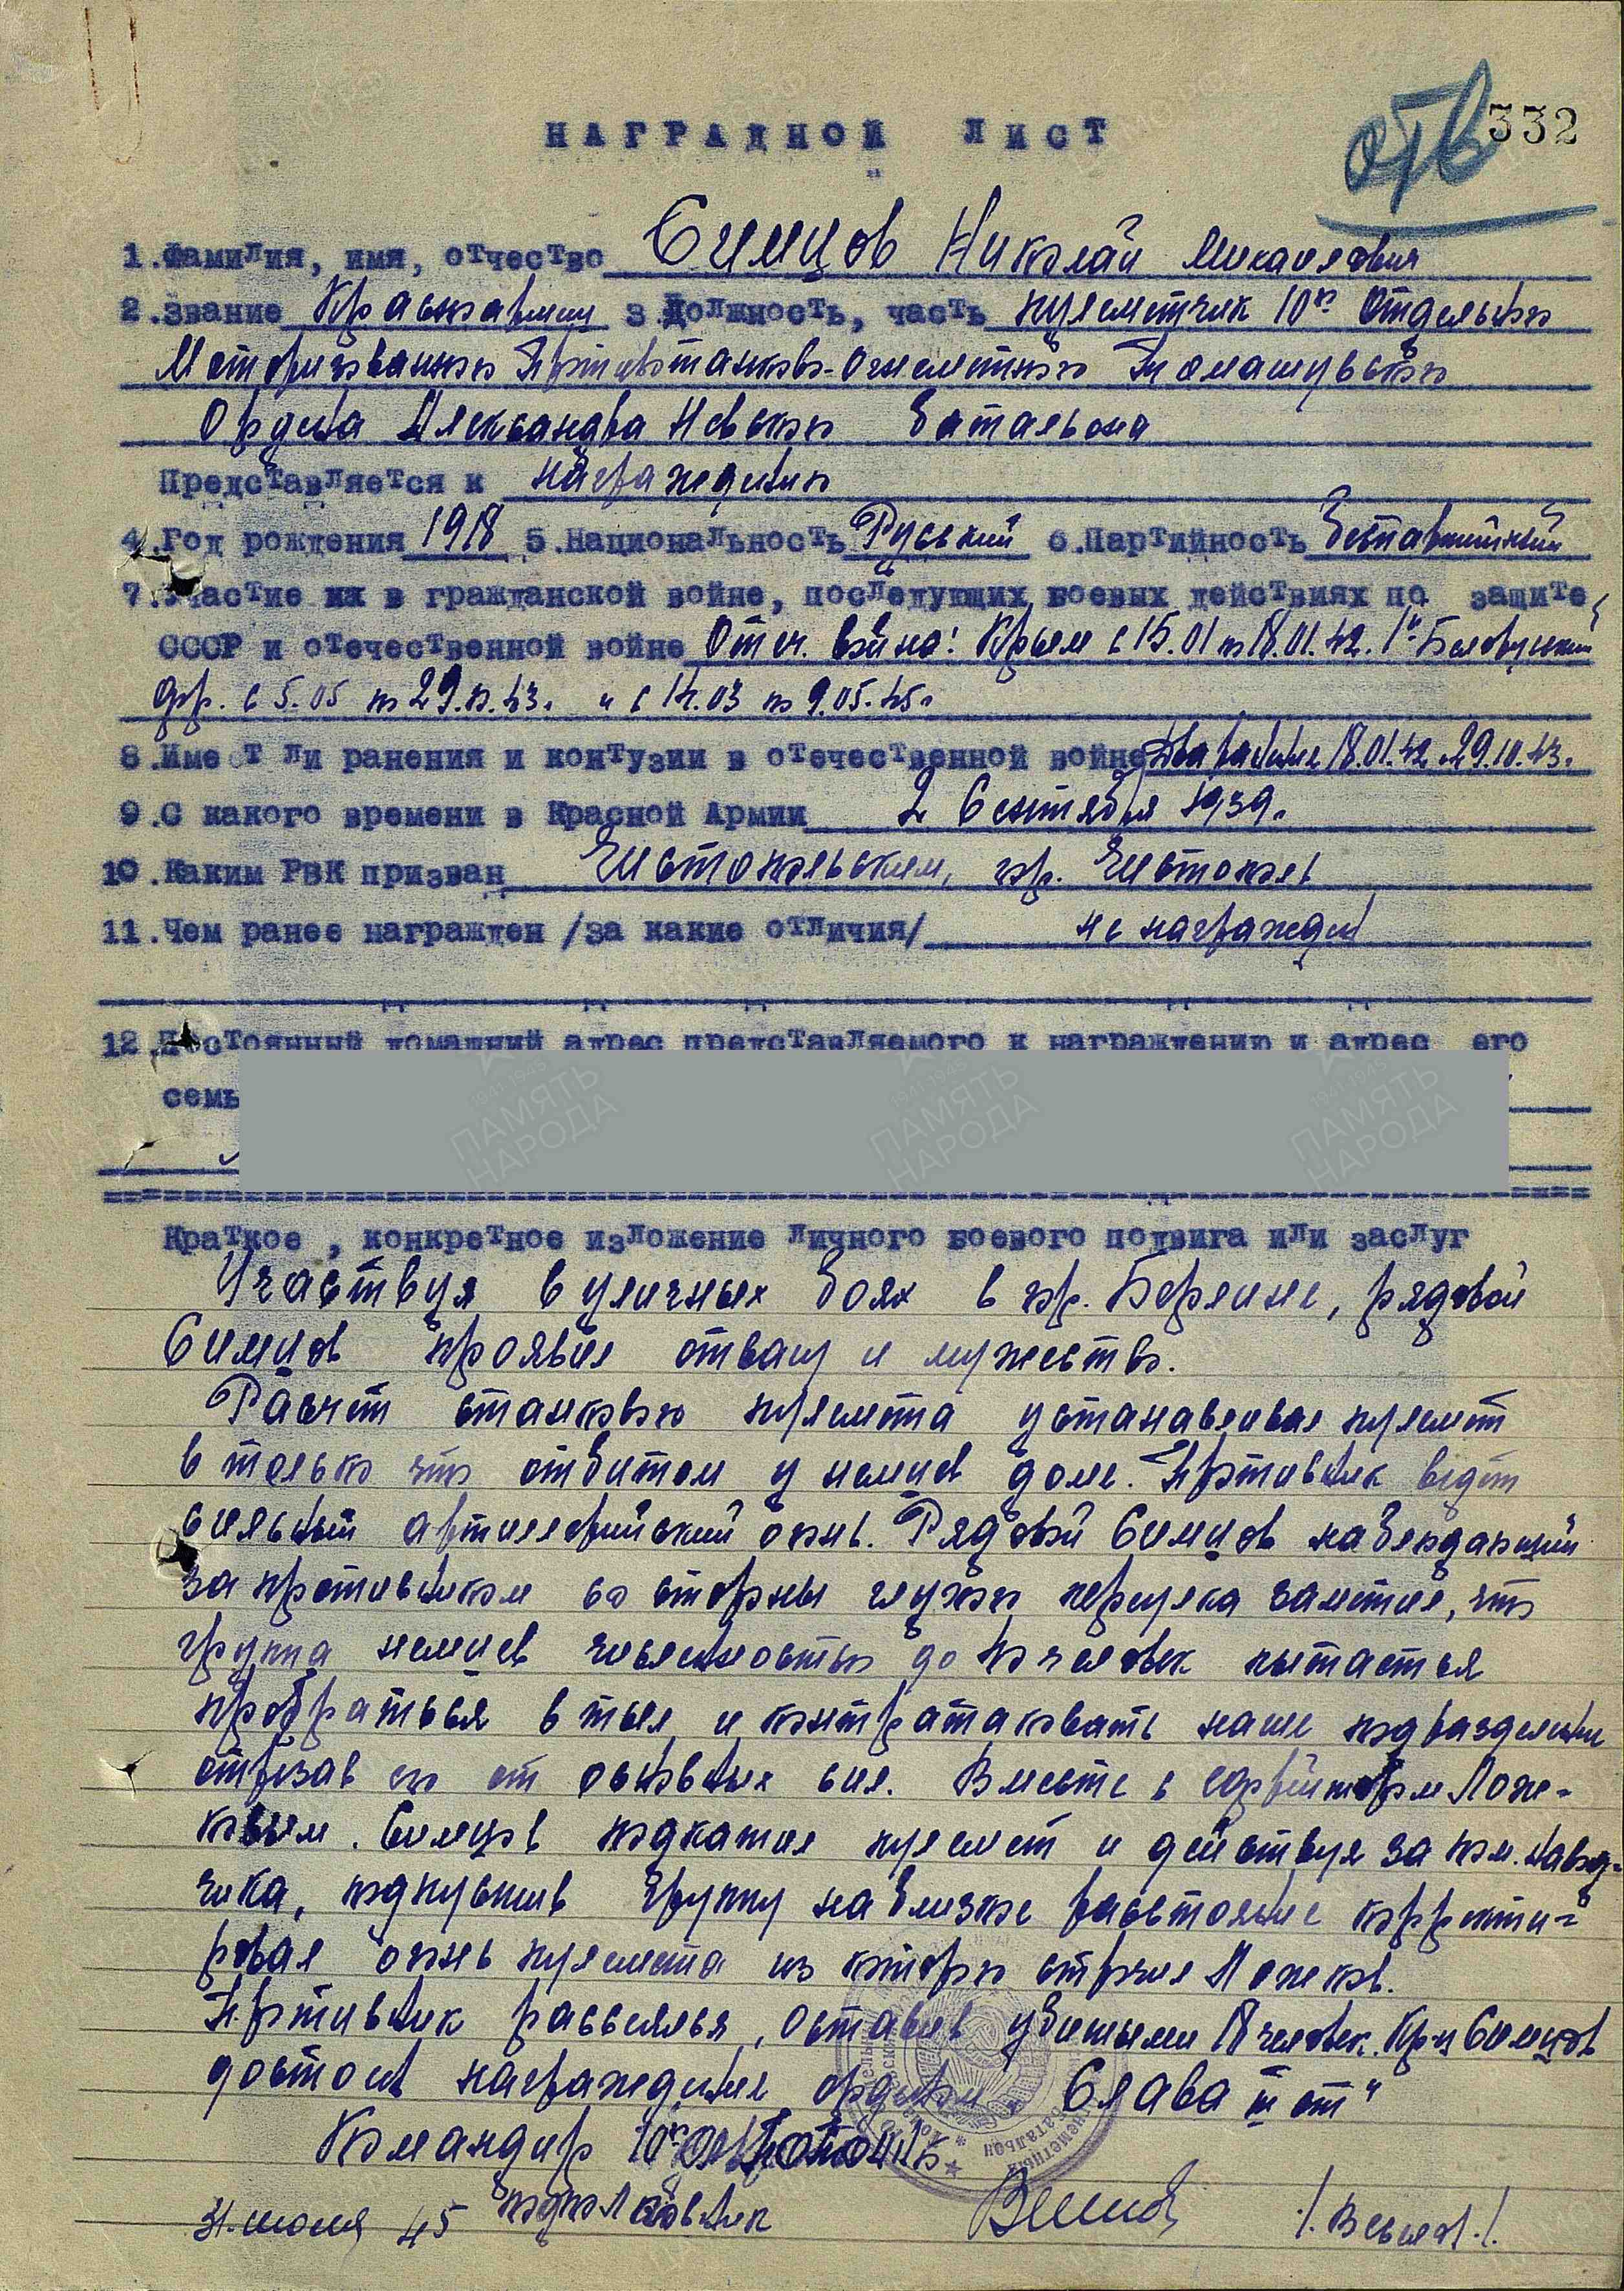 332
отв
НАГРАДНОЙ ЛИСТ
1.Фамилия, имя, отчество Симцов Николай Михайлович
2.Звание Красноармеец 3.Должность, часть пулеметчик 10го Отдельного
Моторизованного Противотанково-Огнеметного Томашувского
Ордена Александра Невского Батальона
Представляется к награждению
4.Год рождения 1918 5.Национальность Руський 6.Партийность Беспартийный
7.Участие их в гражданской войне, последующих боевых действиях по защите
СССР и отечественной войне Отеч. война: Крым с 15.01 по 18.01.42. 1й Белорусский
фр. с 5.05 по 29.10.43. и с 14.03 по 9.05.45г
8.Имеет ли ранения и контузии в отечественной войне Два ранение 18.01.42. 29.10.43.
9.С какого времени в Красной Армии 2 Сентября 1939г.
10.Каким РВК призван Чистопольским, гор. Чистополь
11.Чем ранее награжден /за какие отличия/ не награжден
12.Постоянный домашний адрес представляемого к награждению и адрес его
семь
Краткое, конкретное изложение личного боевого подвига или заслуг
Участвуя в уличных боях в гор. Берлине, рядовой
Симцов проявил отвагу и мужество.
Расчет станкового пулемета устанавливал пулемет
в только что отбитом у немцев доме. Противник ведет
сильный артиллерийский огонь. Рядовой Симцов наблюдающий
за противником со стороны глухого переулка заметил, что
группа немцев численностью до 40 человек пытается
пробраться в тыл и контратаковать наше подразделение
отрезав его от основных сил. Вместе с ефрейтором Ложе-
ковым. Симцов подкатил пулемет и действуя за пом. навод-
чика, подпустив группу на близкое расстояние корректи-
ровал огонь пулемета из которого строчил Ложеков.
Противник рассеялся, оставив убитыми 18 человек. Кр-ц Симцов
достоин награждение орденом "Слава III ст"
Командир 10го
подполковник
31. июля 45 /Весело./
батальон
ПАМЯТЬ НАРОДА
ПАМЯТЬ НАРОДА
ПАМЯТЬ НАРОДА